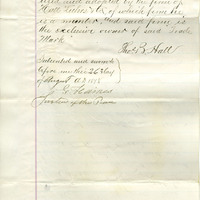 used and adopted by the firm of
Hall Luhrs & Co of which firm he
is a member. And said firm is
the exclusive owner of said Trade
Mark
Thos B. Hall
Subscribed and sworn
before me this 26th day
of August A.D. 187
Justice of the Peace